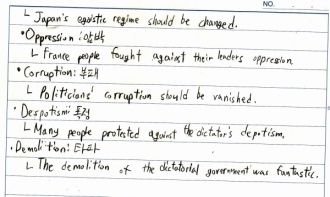 NO.
└ Japan's egoistic regime should be changed.
• Oppression : 압박
└ France people fought against their leaders oppression
• Corruption : 부패
└ Politicians' corruption should be vanished.
• Despotism : 독재
└ Many people protested against the dictator's depotism.
• Demolition :
└ The demolition of the dictatorial government was fantastic.